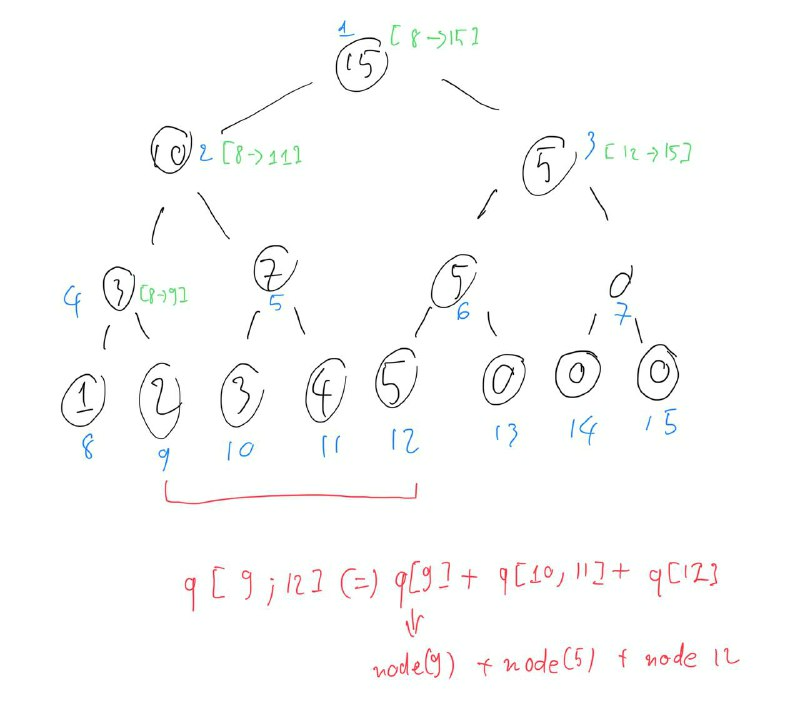 1 [8→15]
15
10 2 [8→11] 5 3 [12→15]
4 3 [8→9] 7 5 0
5 6 7
1 2 3 4 5 0 0 0
8 9 10 11 12 13 14 15
q[9;12] (=) q[9] + q[10,11] + q[12]
node(9) + node(5) + node 12